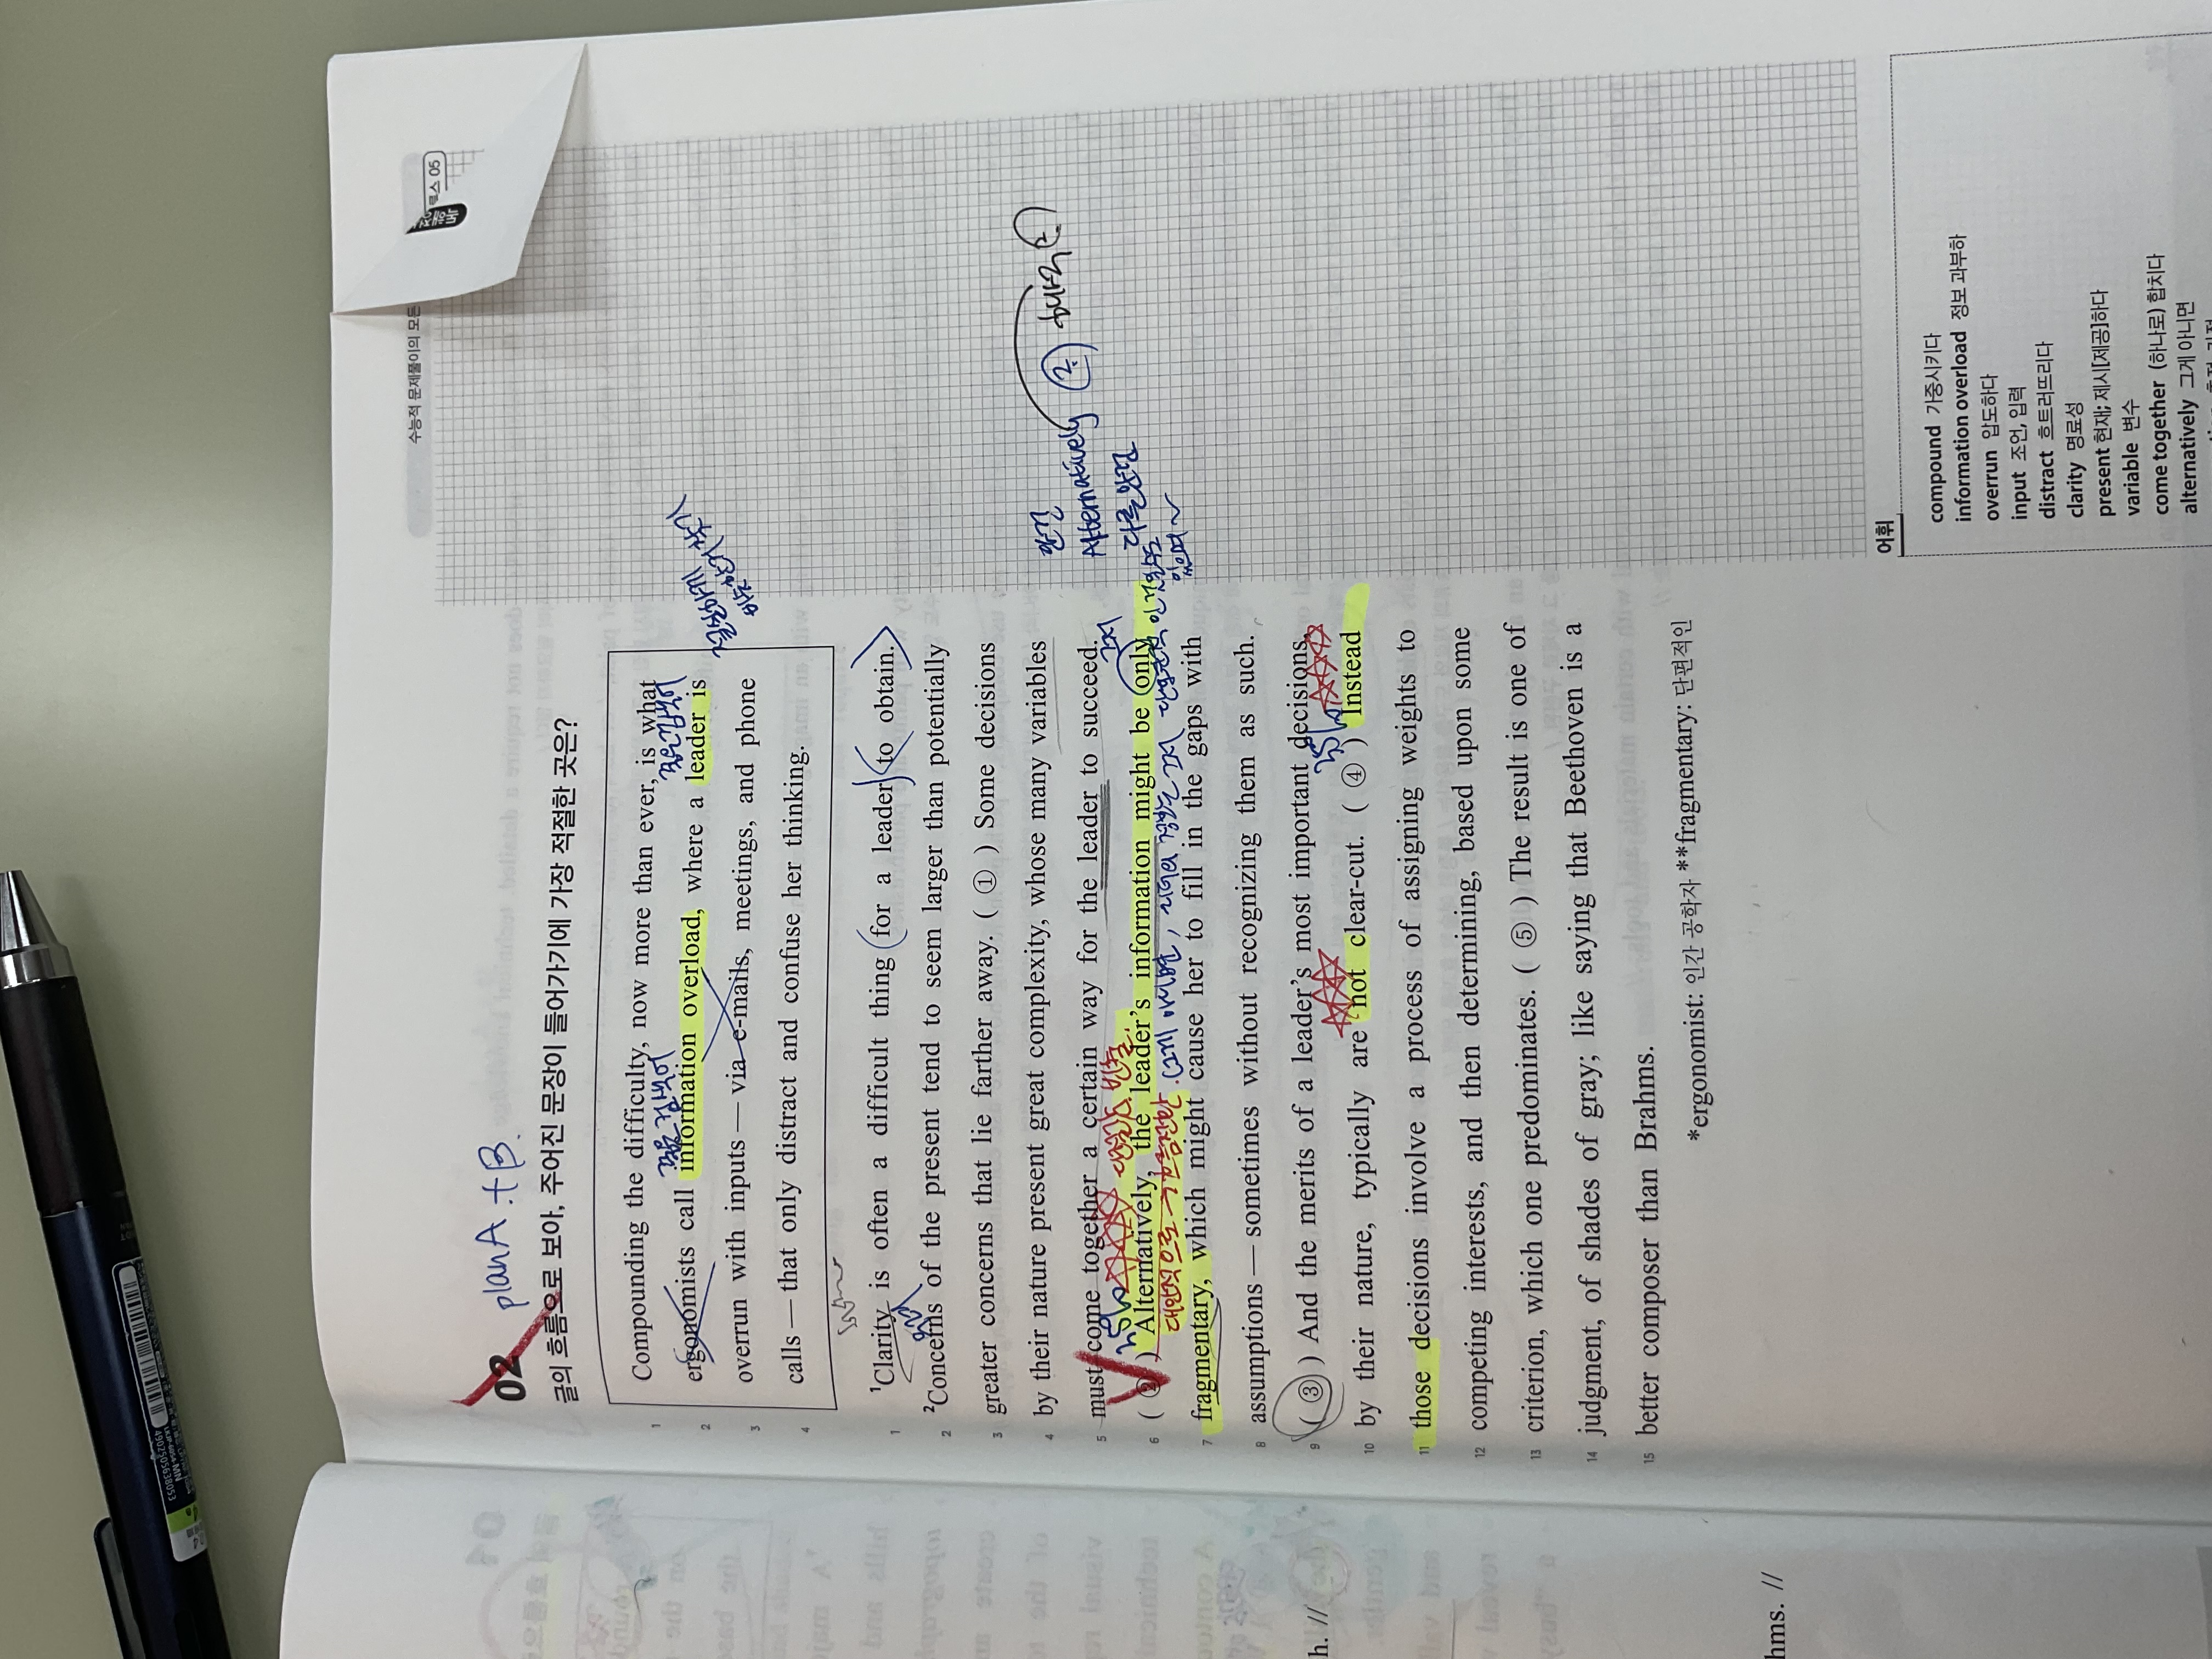 수능적 문제풀이의 모든
루스 05
planA + B.
02
글의 흐름으로 보아, 주어진 문장이 들어가기에 가장 적절한 곳은?
1 Compounding the difficulty, now more than ever, is what
2 ergonomists call information overload, where a leader is
3 overrun with inputs — via e-mails, meetings, and phone
4 calls — that only distract and confuse her thinking.
1 ¹Clarity is often a difficult thing for a leader to obtain.
2 ²Concerns of the present tend to seem larger than potentially
3 greater concerns that lie farther away. ( ① ) Some decisions
4 by their nature present great complexity, whose many variables
5 must come together a certain way for the leader to succeed.
6 ( ② ) Alternatively, the leader's information might be only
7 fragmentary, which might cause her to fill in the gaps with
8 assumptions — sometimes without recognizing them as such.
9 ( ③ ) And the merits of a leader's most important decisions,
10 by their nature, typically are not clear-cut. ( ④ ) Instead
11 those decisions involve a process of assigning weights to
12 competing interests, and then determining, based upon some
13 criterion, which one predominates. ( ⑤ ) The result is one of
14 judgment, of shades of gray; like saying that Beethoven is a
15 better composer than Brahms.
*ergonomist: 인간 공학자 **fragmentary: 단편적인
Alternatively
어휘
compound 가중시키다
information overload 정보 과부하
overrun 압도하다
input 조언, 입력
distract 흐트러뜨리다
clarity 명료성
present 현재; 제시[제공]하다
variable 변수
come together (하나로) 합치다
alternatively 그게 아니면
h. //
hms. //